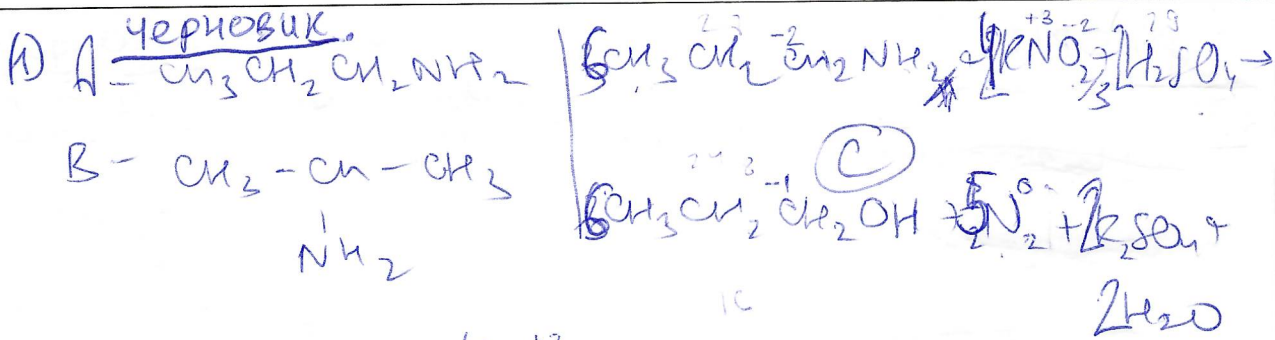 черновик.
1) A - CH3CH2CH2NH2
B - CH3-CH-CH3
NH2
6CH3CH2CH2NH2 + 4KNO2 + 2H2SO4 →
C
6CH3CH2CH2OH + 5N2 + 2K2SO4 +
2H2O